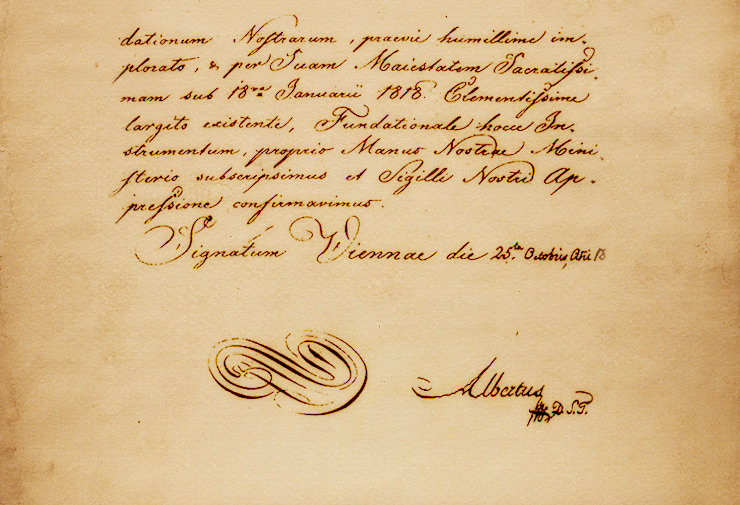 dationum Nostrarum, praevie humillime im-
plorato, & per Suam Maiestatem Sacratissi-
mam sub 18va Januarii 1818. Clementissime
largito existente, Fundationale hocce In-
strumentum, proprio Manus Nostrae Mini-
sterio subscripsimus et Sigilli Nostri Ap-
pressione confirmavimus.
Signatum Viennae die 25ta Octobris,
Albertus
D. S. T.